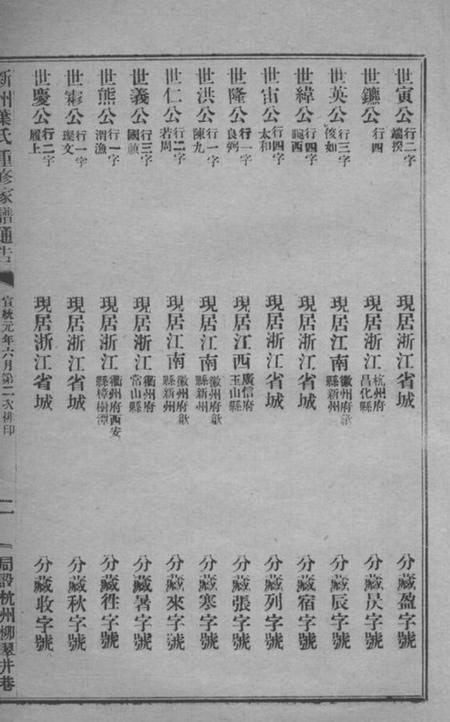 世寅公行二字端揆 現居浙江省城 分藏盈字號
世鑣公行四 現居浙江杭州府昌化縣 分藏昃字號
世英公行三字俊如 現居江南徽州府歙縣新州 分藏辰字號
世緯公行四字畹西 現居浙江省城 分藏宿字號
世宙公行四字太和 現居浙江省城 分藏列字號
世隆公行一字良弼 現居江西廣信府玉山縣 分藏張字號
世洪公行一字陳九 現居江南徽州府歙縣新州 分藏寒字號
世仁公行二字若周 現居江南徽州府歙縣新州 分藏來字號
世義公行三字國禎 現居浙江衢州府常山縣 分藏暑字號
世熊公行一字渭漁 現居浙江衢州府西安縣樟樹潭 分藏往字號
世寀公行一字璨文 現居浙江省城 分藏秋字號
世慶公行二字履上 現居浙江省城 分藏收字號
新州葉氏重修家譜通告 宣統元年六月第二次排印 二 局設杭州柳翠井巷